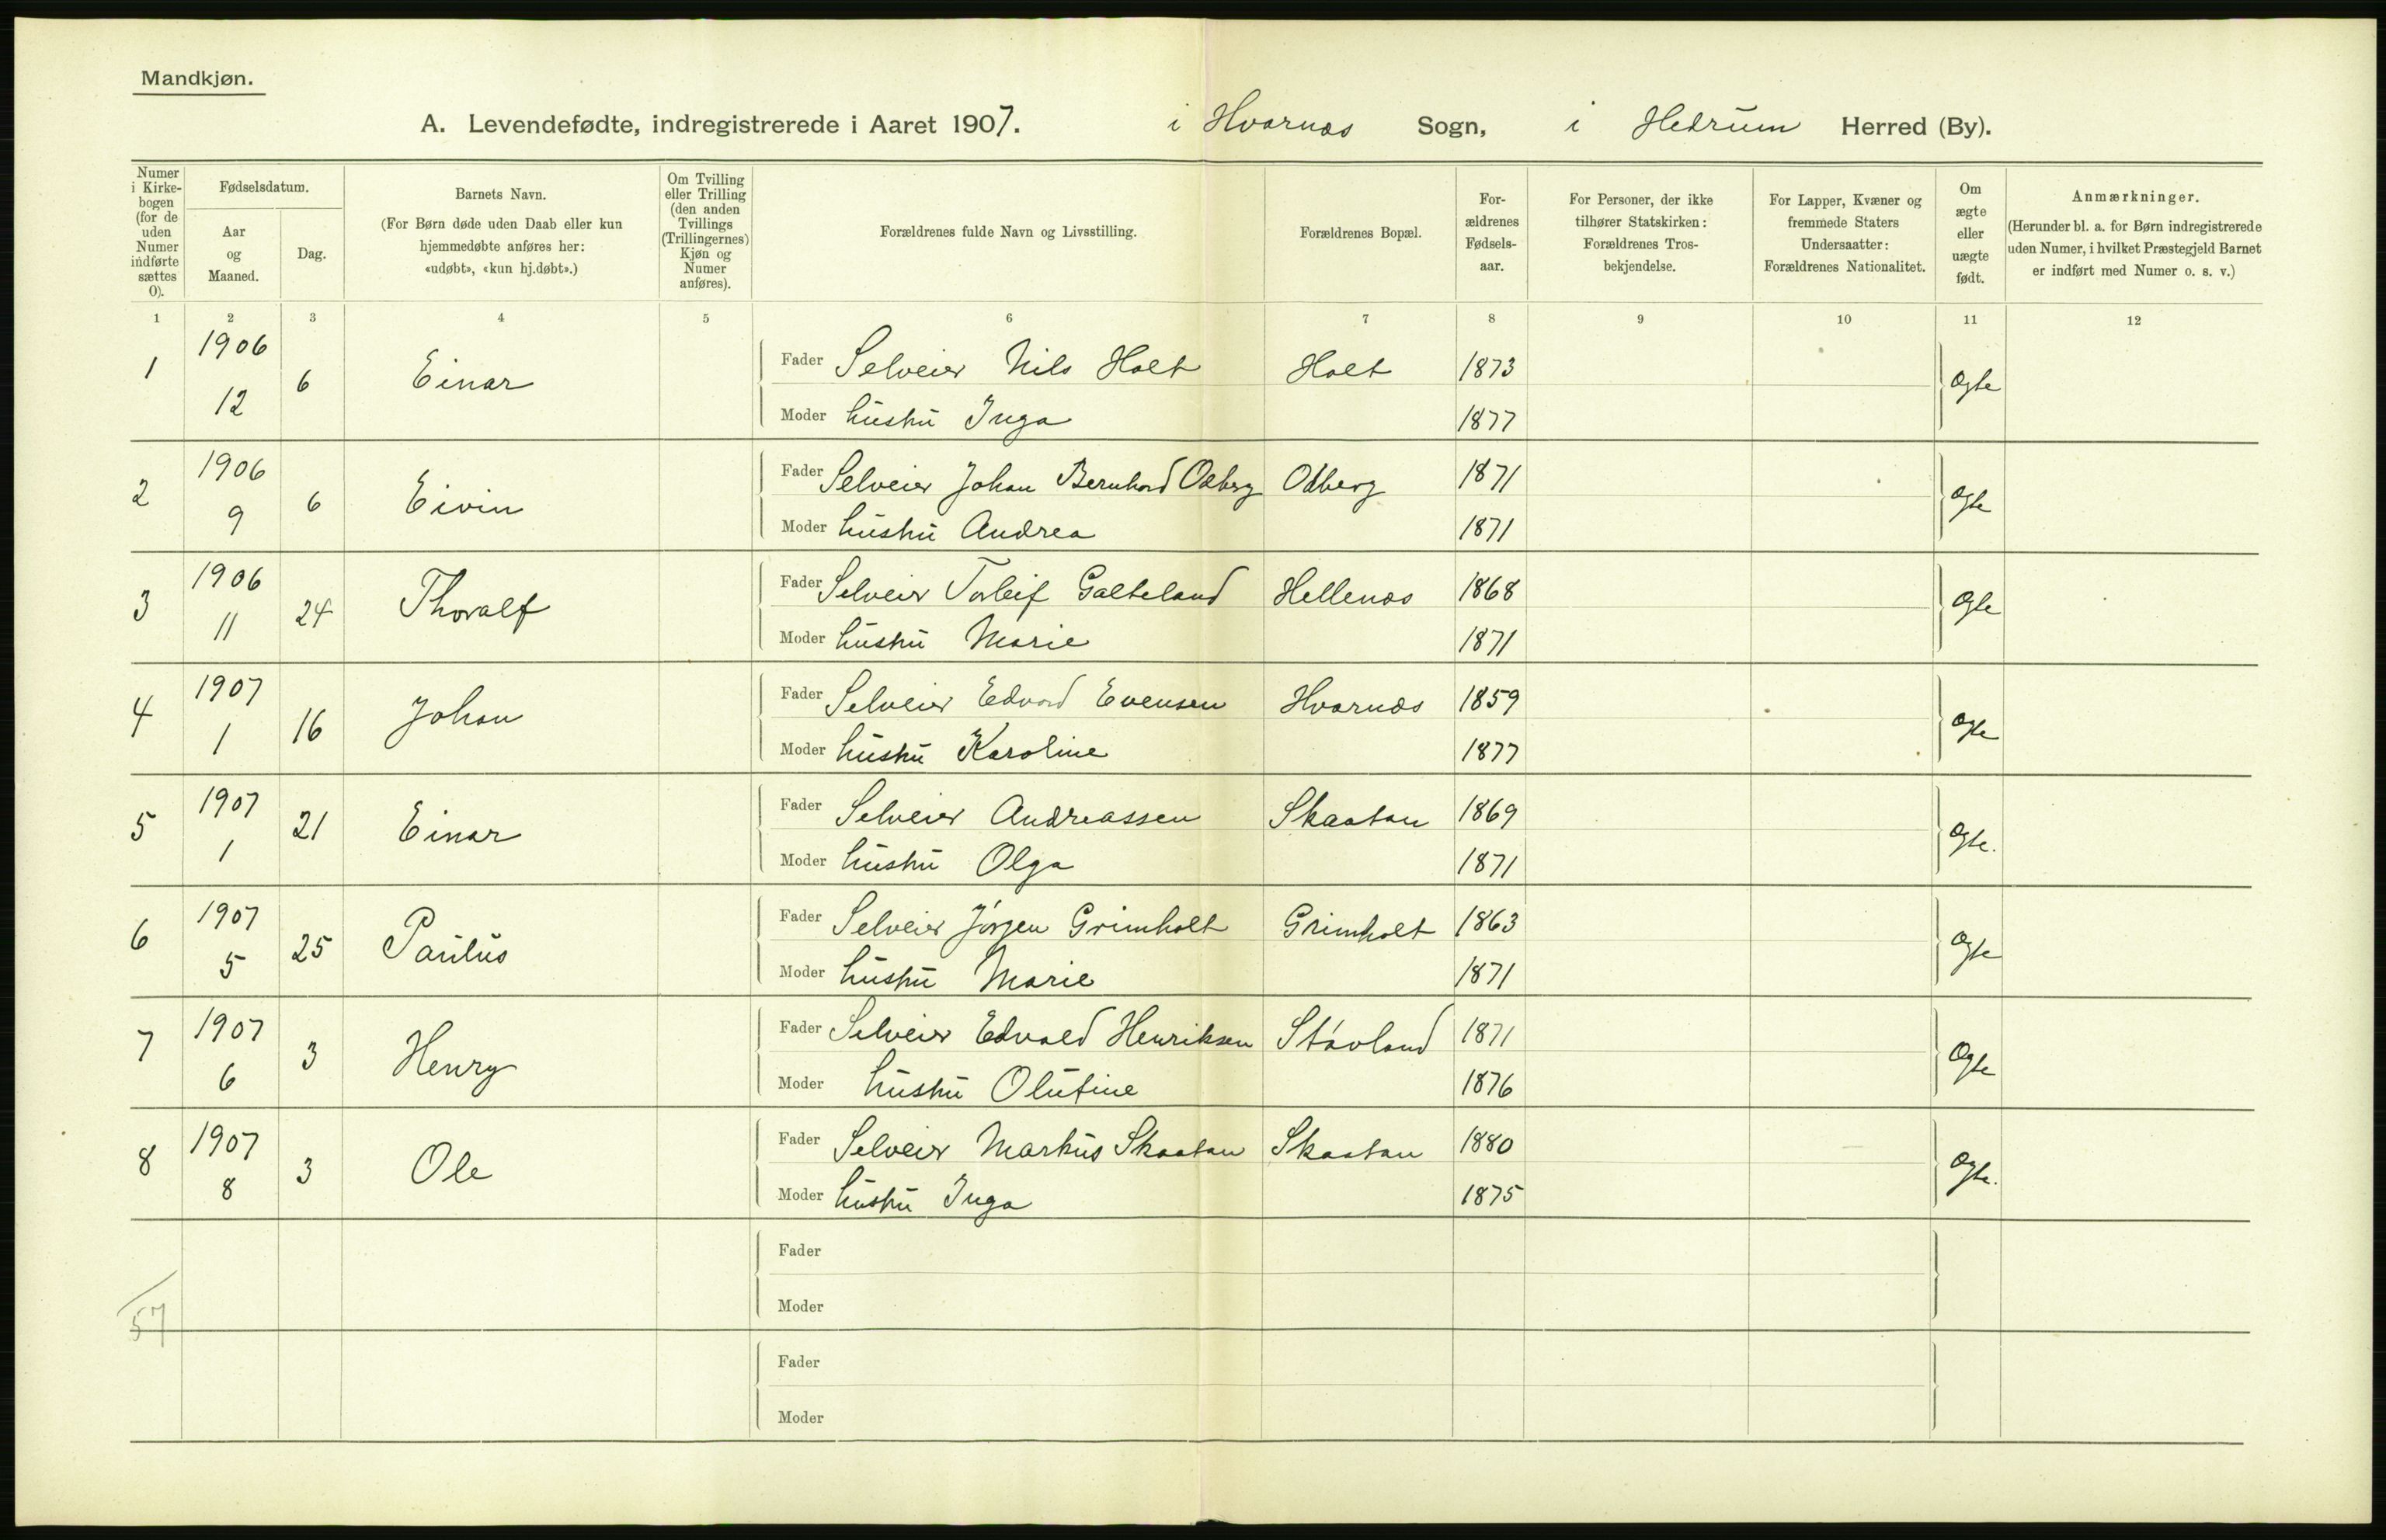 Mandkjøn.
A. Levendefødte, indregistrerede i Aaret 1907. i Hvarnæs Sogn, i Hedrum Herred (By).
Numer i Kirkebogen (for de uden Numer indførte sættes 0).
Fødselsdatum.
Aar og Maaned.
Dag.
Barnets Navn.
(For Børn døde uden Daab eller kun hjemmedøbte anføres her: «udøbt», «kun hj.døbt».)
Om Tvilling eller Trilling (den anden Tvillings (Trillingernes) Kjøn og Numer anføres).
Forældrenes fulde Navn og Livsstilling.
Forældrenes Bopæl.
Forældrenes Fødselsaar.
For Personer, der ikke tilhører Statskirken: Forældrenes Trosbekjendelse.
For Lapper, Kvæner og fremmede Staters Undersaatter: Forældrenes Nationalitet.
Om ægte eller uægte født.
Anmærkninger.
(Herunder bl. a. for Børn indregistrerede uden Numer, i hvilket Præstegjeld Barnet er indført med Numer o. s. v.)
1 2 3 4 5 6 7 8 9 10 11 12
1 1906 12 6 Einar Fader Selveier Nils Holt Holt 1873 Ægte
Moder hustru Inga 1877
2 1906 9 6 Eivin Fader Selveier Johan Bernhard Odberg Odberg 1871 Ægte
Moder hustru Andrea 1871
3 1906 11 24 Thoralf Fader Selveier Torleif Galteland Hellenæs 1868 Ægte
Moder hustru Marie 1871
4 1907 1 16 Johan Fader Selveier Edvard Evensen Hvarnæs 1859 Ægte
Moder hustru Karoline 1877
5 1907 1 21 Einar Fader Selveier Andreassen Skaatan 1869 Ægte.
Moder hustru Olga 1871
6 1907 5 25 Paulus Fader Selveier Jörgen Grimholt Grimholt 1863 Ægte
Moder hustru Marie 1871
7 1907 6 3 Henry Fader Selveier Edvald Henriksen Stövland 1871 Ægte
Moder hustru Olufine 1876
8 1907 8 3 Ole Fader Selveier Markus Skaatan Skaatan 1880 Ægte.
Moder hustru Inga 1875
Fader
Moder
57
Fader
Moder